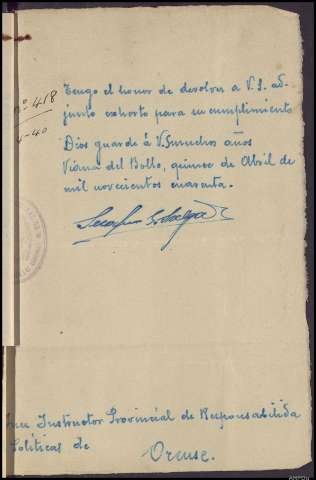 nº 418
4-40
Tengo el honor de devolver a V.S. ad-
junto exhorto para su cumplimiento
Dios guarde á V.S. muchos años
Viana del Bollo, quince de Abril de
mil novecientos cuarenta.
Instructor Provincial de Responsabilida
Políticas de
Orense.